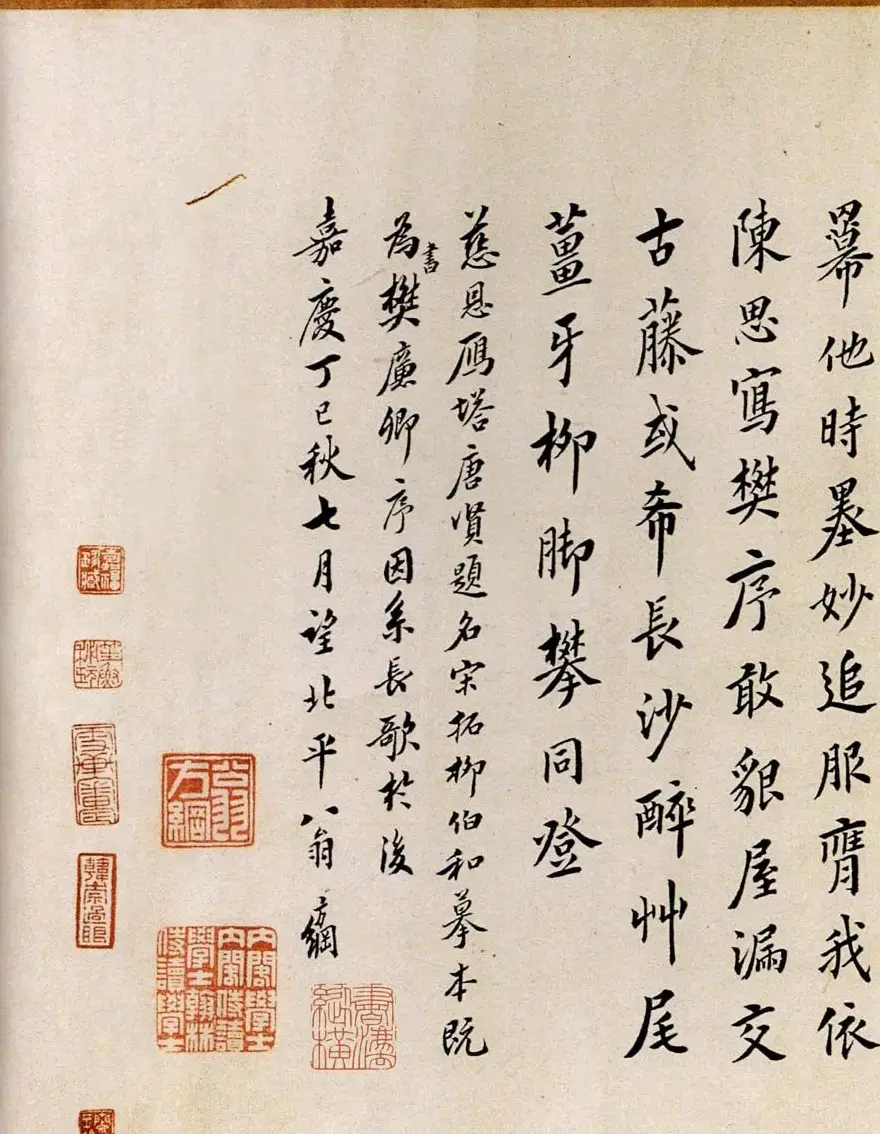 冪他時墨妙追服膺我依
陳思寫樊序敢貌屋漏交
古藤或希長沙醉艸尾
薑牙柳脚攀同登
慈恩鴈塔唐賢題名宋拓柳伯和摹本既
為書樊廉卿序因系長歌於後
嘉慶丁巳秋七月望北平翁方綱
翁方綱
內閣學士內閣侍讀學士翰林侍讀學士
韓崇過眼